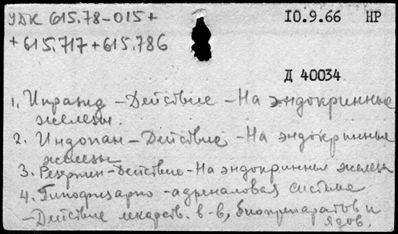 УДК 615.78-015+
+615.717+615.786
10.9.66 НР
Д 40034
1. Ипразид - Действие - На эндокринные
железы.
2. Индопан - Действие - На эндокринные
железы
3. Резерпин - Действие - На эндокринные железы
4. Гипофизарно-адреналовая система
- Действие лекарств. в-в, биопрепаратов и
ядов.